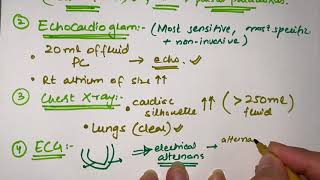 ② Echocardiogram:- (Most sensitive, most specific + non-invasive)
• 20 ml of fluid PC → echo.
• Rt atrium of size ↑↑
③ Chest X-ray:- • cardiac silhouette ↑↑ (>250ml fluid)
• Lungs (clear) ✓
④ ECG:- → electrical alternans → alterna